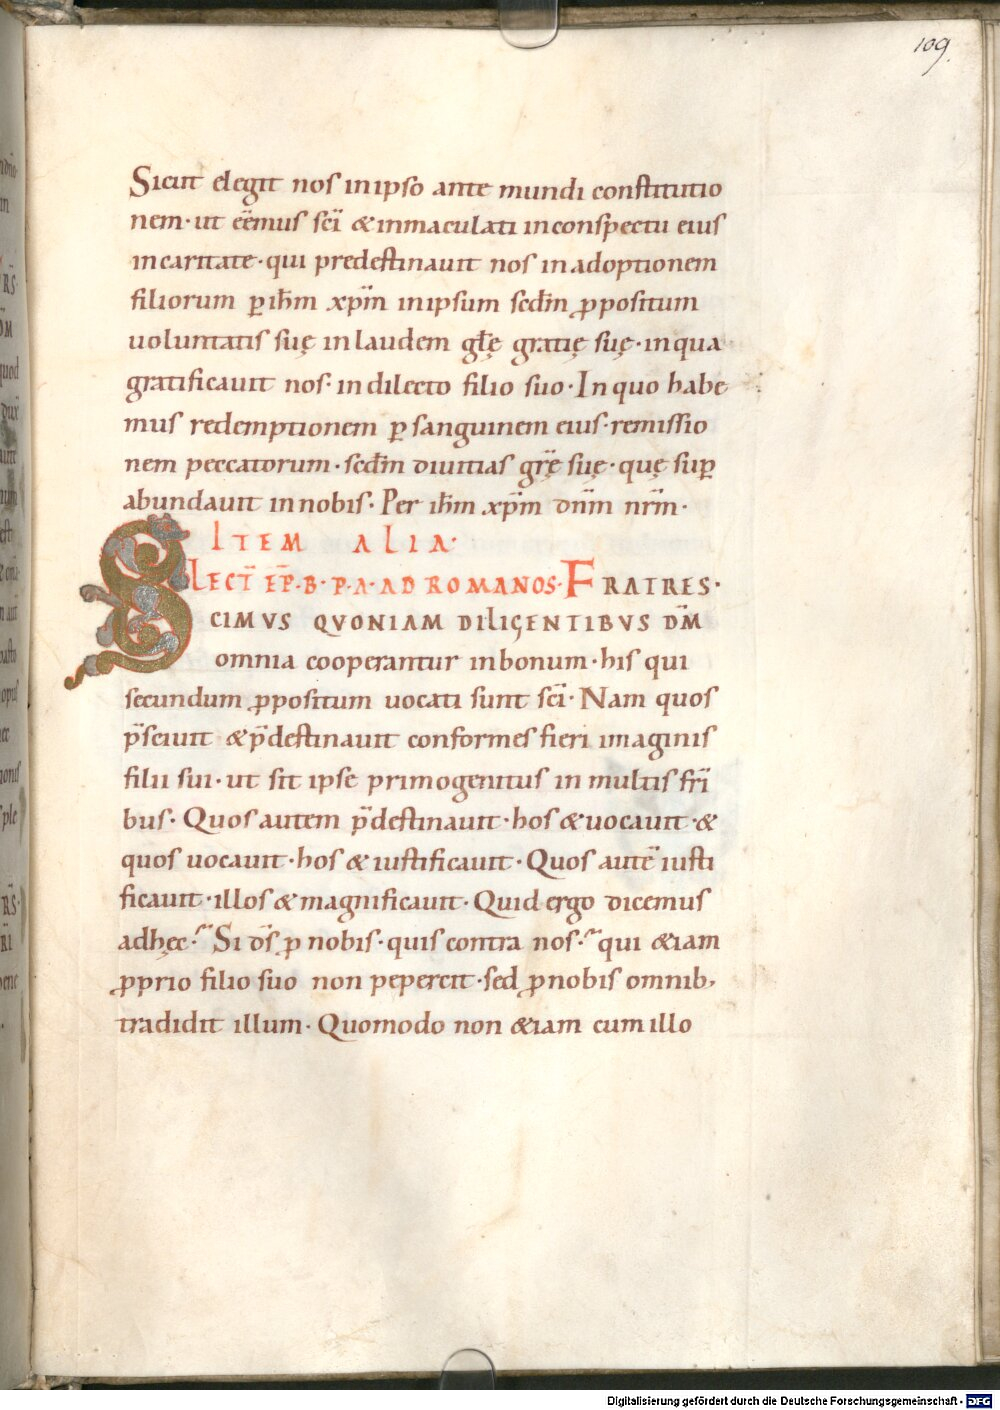 109.
Sicut elegit nos inipso ante mundi constitutio
nem· ut eēmus sc̄i &inmaculati inconspectu eius
incaritate· qui predestinauit nos inadoptionem
filiorum ꝑ ih̄m xp̄m inipsum scdm̄ ꝓpositum
uoluntatis suę inlaudem gl̄ę gratię suę· inqua
gratificauit nos· indilecto filio suo· In quo habe
mus redemptionem ꝑ sanguinem eius· remissio
nem peccatorum· scdm̄ diuitias gr̄ę suę· quę suꝑ
abundauit innobis· Per ih̄m xp̄m dn̄m nr̄m·
ITEM ALIA·
LECT̄ EP̄·B·P·A·AD ROMANOS· FRATRES·
SCIMVS QVONIAM DILIGENTIBVS DM̄
omnia cooperantur inbonum· his qui
secundum ꝓpositum uocati sunt sc̄i· Nam quos
p̄sciuit &p̄destinauit conformes fieri imaginis
filii sui· ut sit ipse primogenitus in multis fr̄i
bus· Quos autem p̄destinauit· hos &uocauit· &
quos uocauit· hos & iustificauit· Quos autē iusti
ficauit· illos & magnificauit· Quid ergo dicemus
adhęc· Si ds̄ ꝓ nobis· quis contra nos· qui &iam
ꝓprio filio suo non pepercit· sed ꝓnobis omnib;
tradidit illum· Quomodo non &iam cum illo
Digitalisierung gefördert durch die Deutsche Forschungsgemeinschaft - DFG